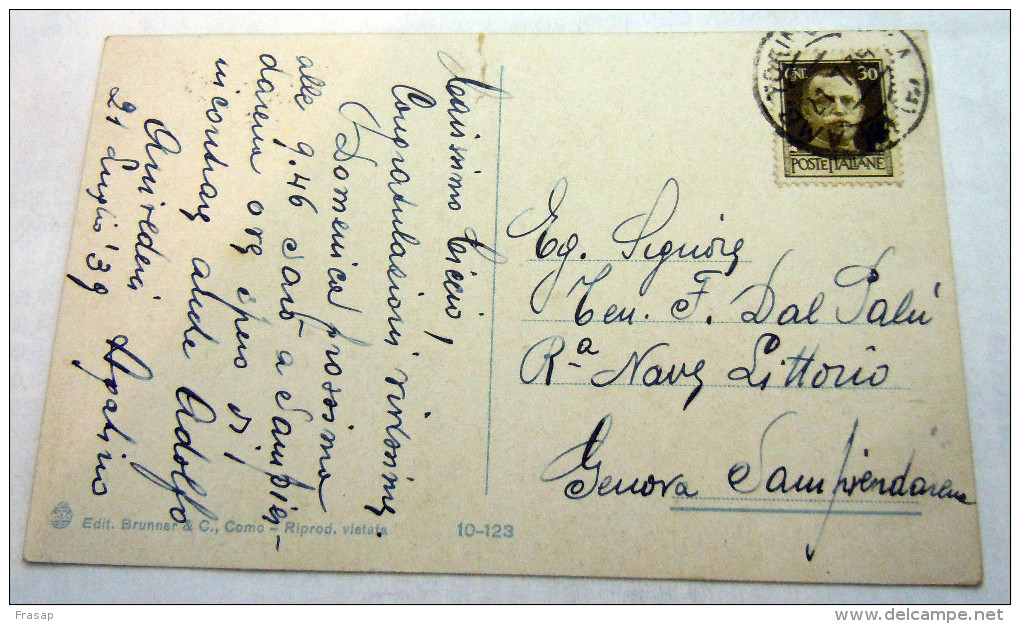 Carissimo Ciccio,
Congratulazioni vivissime.
Domenica prossima
alle 9.46 sarò a Sampier-
darena ove spero di
incontrare anche Adolfo
Arrivederci
21 Luglio '39
CENT. 30
POSTE ITALIANE
Eg. Signore
Ten. F. Dal Palù
Rª Nave Littorio
Genova Sampierdarena
Edit. Brunner & C., Como – Riprod. vietata
10-123
Frasap
delcampe.net